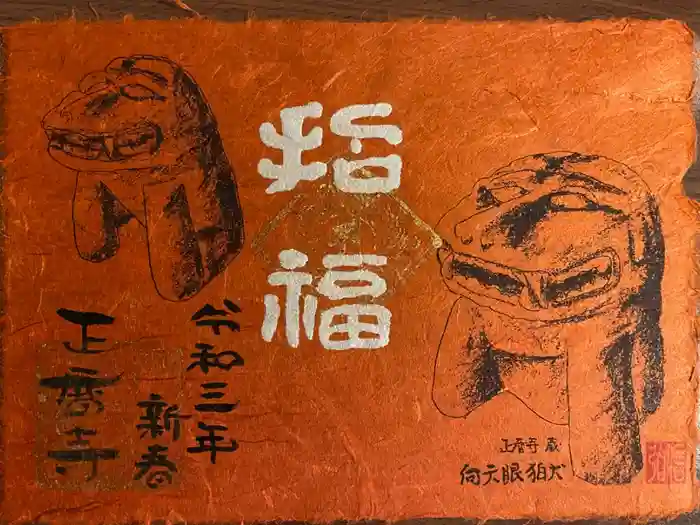 招
福
令和三年
新春
正暦寺
正暦寺 蔵
向天眼狛犬